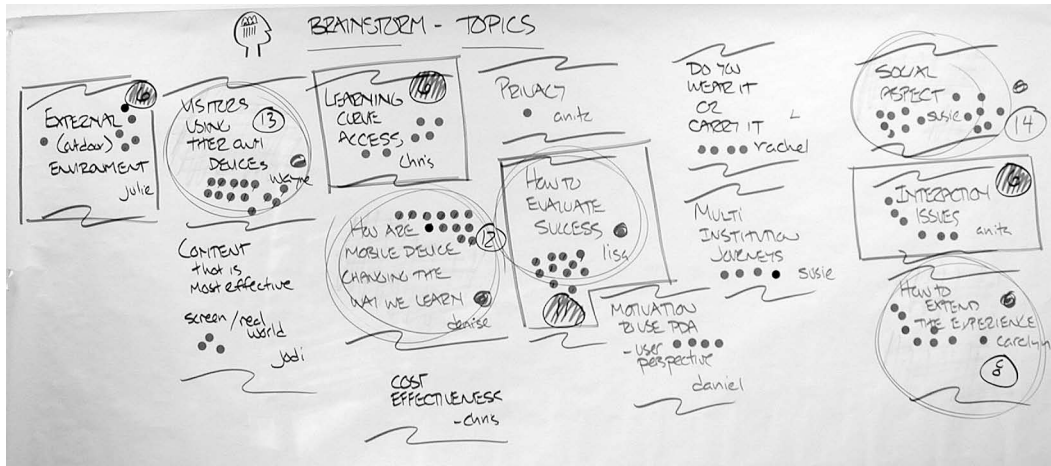 BRAINSTORM - TOPICS
EXTERNAL
(outdoor)
ENVIRONMENT
julie
6
VISITORS
USING
THEIR OWN
DEVICES
wayne
13
CONTENT
that is
most effective
screen/real
world
jodi
LEARNING
CURVE
ACCESS
chris
6
HOW ARE
MOBILE DEVICE
CHANGING THE
WAY WE LEARN
denise
12
COST
EFFECTIVENESS
-chris
PRIVACY
anita
HOW TO
EVALUATE
SUCCESS
lisa
MOTIVATION
TO USE PDA
-user
perspective
daniel
DO YOU
WEAR IT
OR
CARRY IT
rachel
MULTI
INSTITUTION
JOURNEYS
susie
SOCIAL
ASPECT
susie
14
INTERACTION
ISSUES
anita
6
HOW TO
EXTEND
THE EXPERIENCE
carolyn